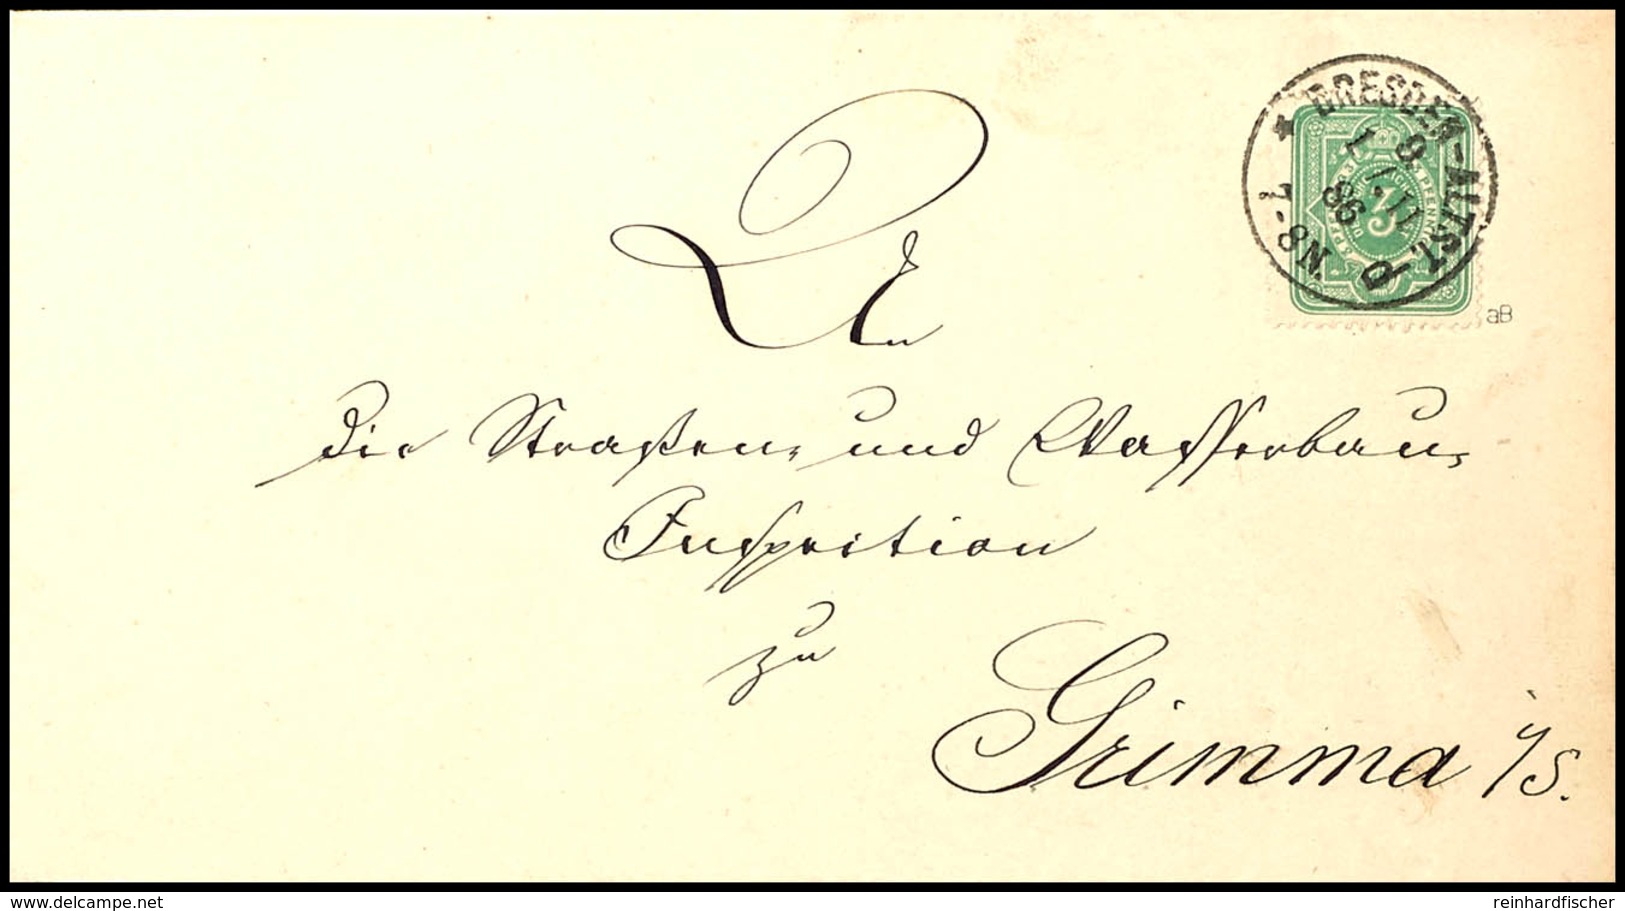 DRESDEN-ALTST.-D
9
7/11
86
N8-
3 PFENNIG
3
aB
An
die Straßen- und Wasserbau-
Inspection
zu
Grimma i/S.
www.delcampe.net
reinhardfischer